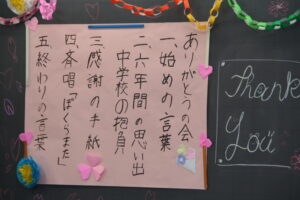 ありがとうの会
一、始めの言葉
二、六年間の思い出
中学校の抱負
三、感謝の手紙
四、斉唱「ぼくらまた」
五、終わりの言葉
Thank
You